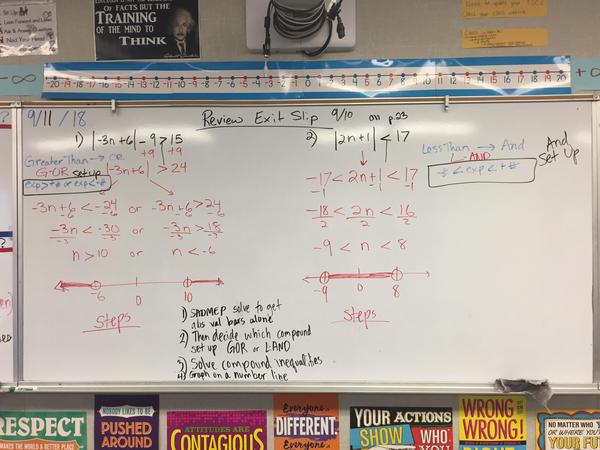 OF FACTS BUT THE
TRAINING
OF THE MIND TO
THINK
-∞
-20 -19 -18 -17 -16 -15 -14 -13 -12 -11 -10 -9 -8 -7 -6 -5 -4 -3 -2 -1 0 1 2 3 4 5 6 7 8 9 10 11 12 13 14 15 16 17 18 19 20
9/11/18
Review Exit Slip 9/10 on p.23
1) |-3n+6| -9 > 15
+9 +9
Greater Than → OR
GOR set up |-3n+6| > 24
exp>+# or exp<-#
-3n+6 < -24 or -3n+6 > 24
-6 -6 -6 -6
-3n < -30 or -3n > 18
-3 -3 -3 -3
n > 10 or n < -6
-6 0 10
Steps
1) SADMEP solve to get
abs val bars alone
2) Then decide which compound
set up GOR or LAND
3) Solve compound inequalities
4) Graph on a number line
2) |2n+1| < 17
-17 < 2n+1 < 17
-1 -1 -1
-18 < 2n < 16
2 2 2
-9 < n < 8
-9 0 8
Steps
Less Than → And
L-AND
-# < exp < +#
And
Set Up
RESPECT
MAKES THE WORLD A BETTER PLACE
NOBODY LIKES TO BE
PUSHED
AROUND
ATTITUDES ARE
CONTAGIOUS
Everyone is
DIFFERENT.
Everyone
YOUR ACTIONS
SHOW WHO
YOU
WRONG
WRONG!
RIGHT
NO MATTER WHO
OR WHERE YOU'
YOUR
FUT